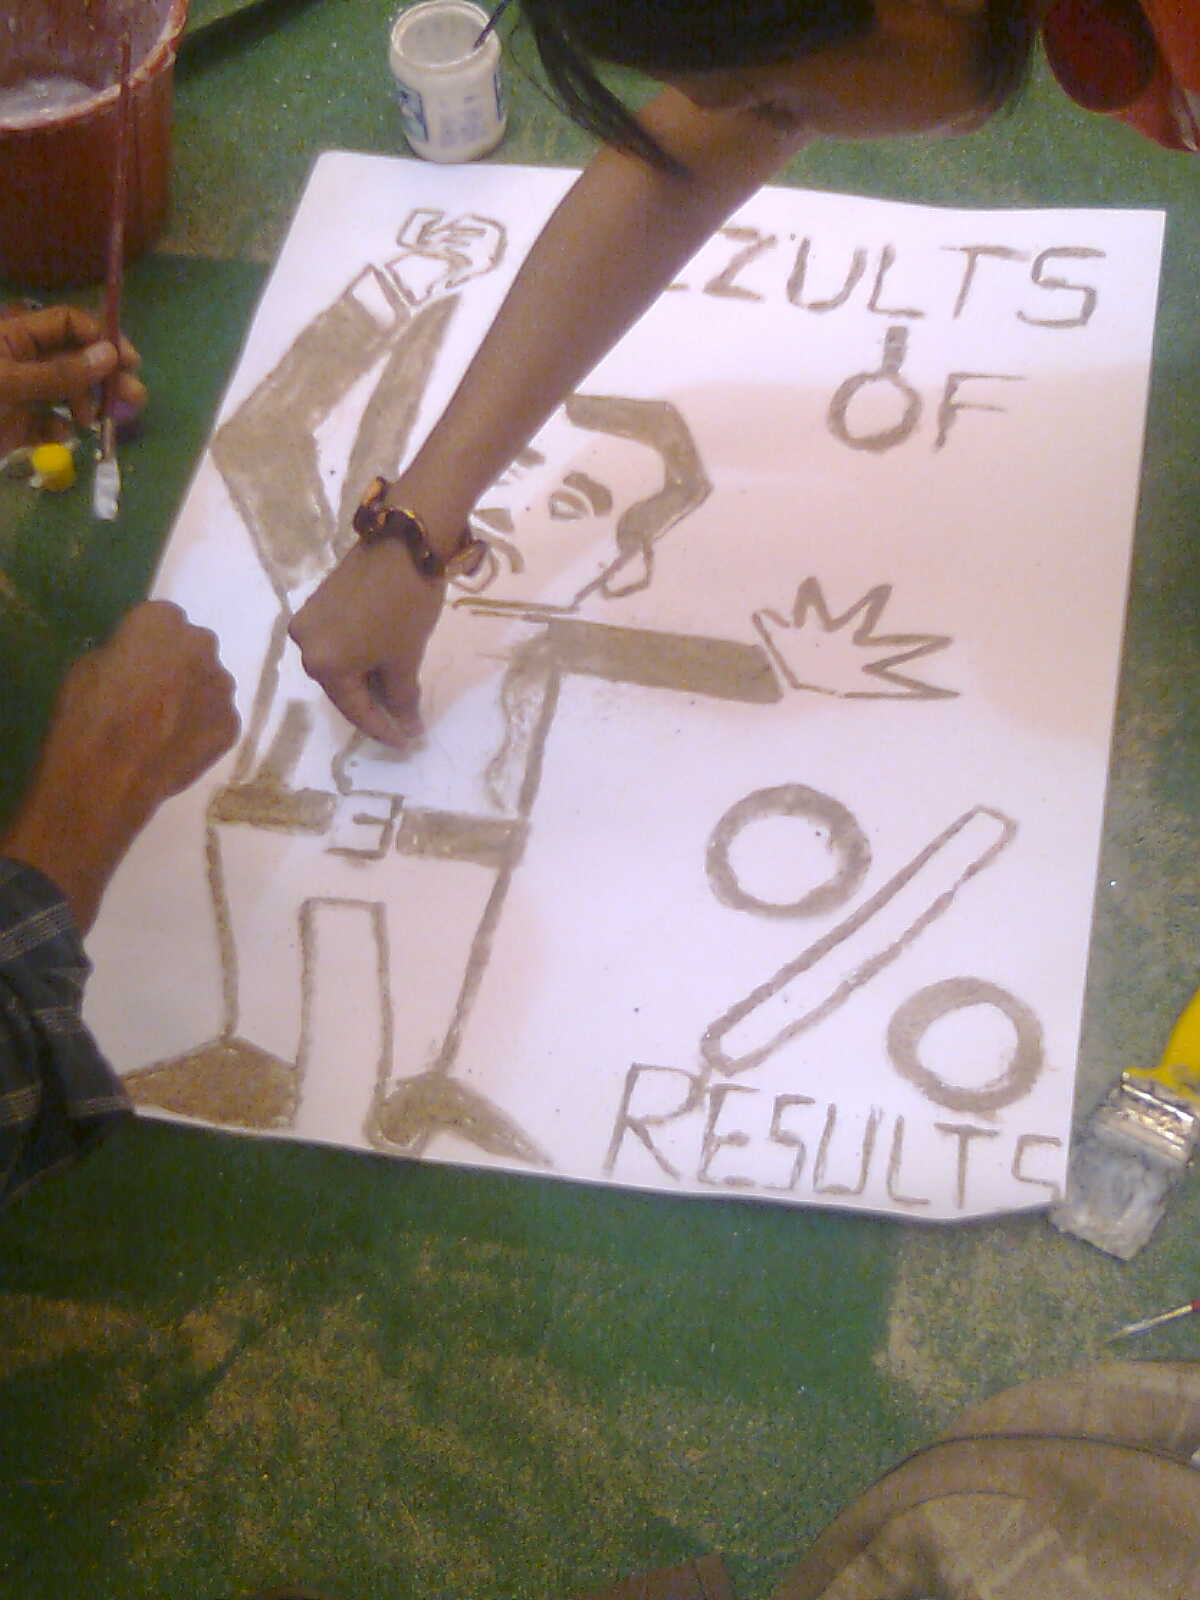 ZULTS
OF
%
RESULTS